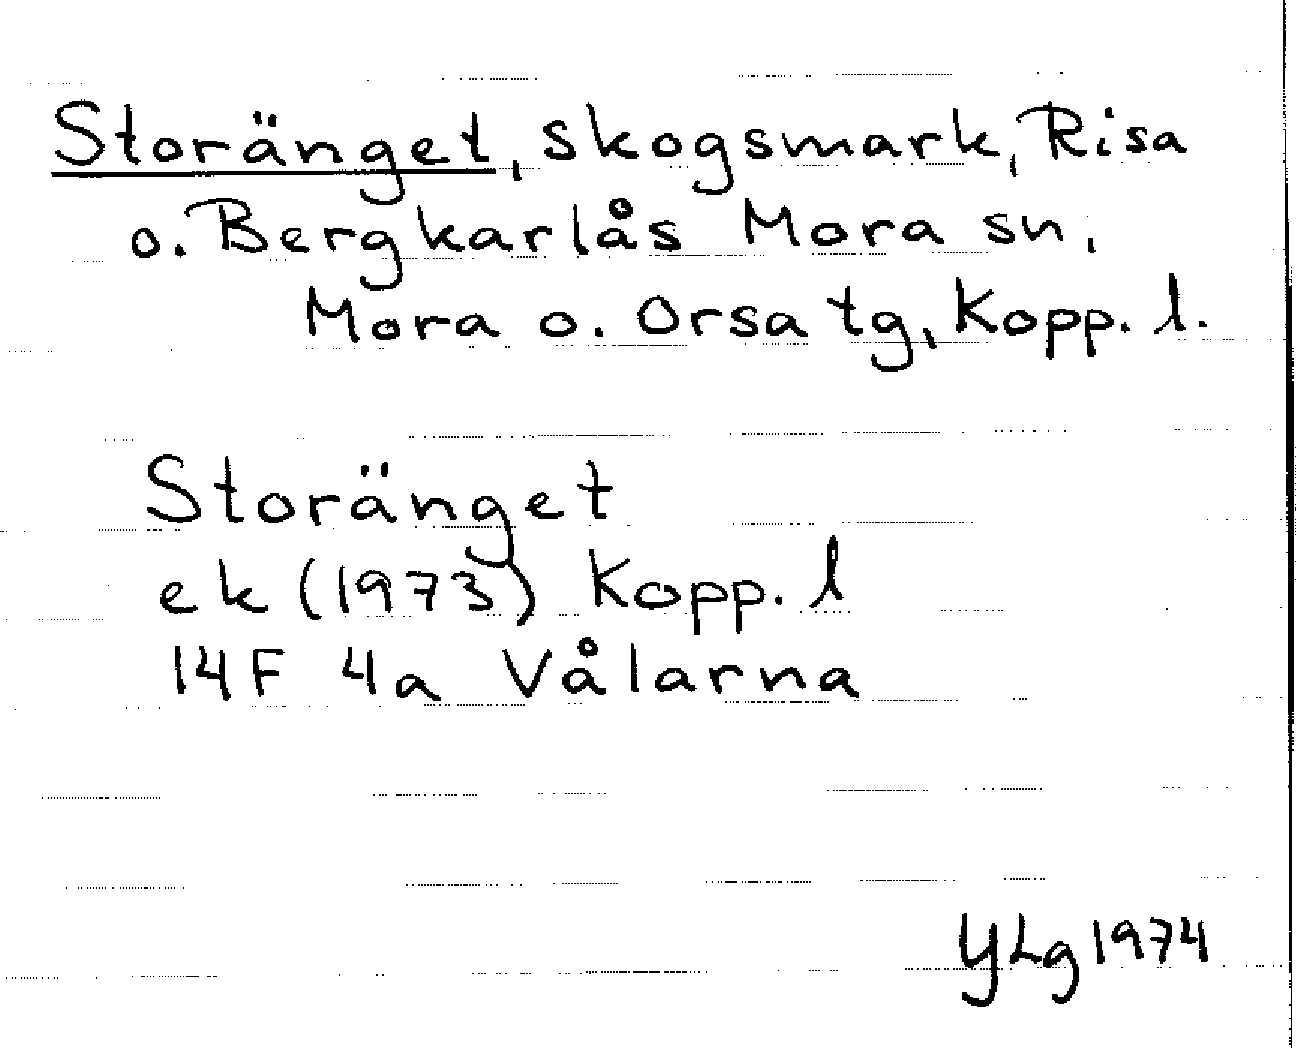 Storänget, skogsmark, Risa
o. Bergkarlås Mora sn,
Mora o. Orsa tg, Kopp. l.
Storänget
ek (1973) Kopp. l
14F 4a Vålarna
YLg 1974